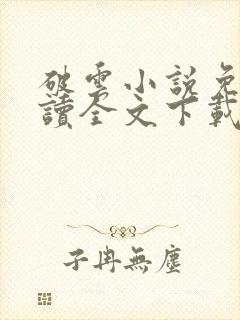 破雲小說免
讀全文下載
子冉無塵